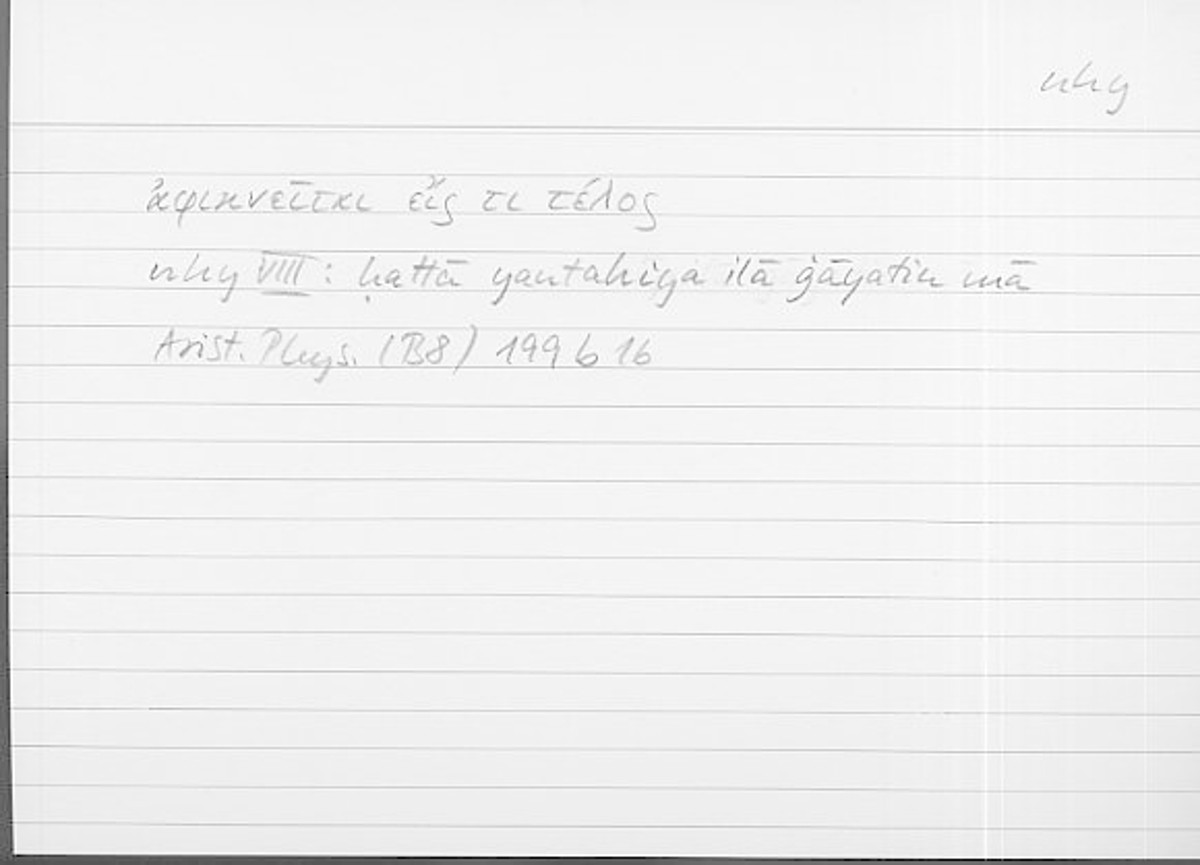 nhy
ἀφικνεῖται εἴς τι τέλος
nhy VIII: ḥattā yantahiya ilā ġāyatin mā
Arist. Phys. (B8) 199 b 16